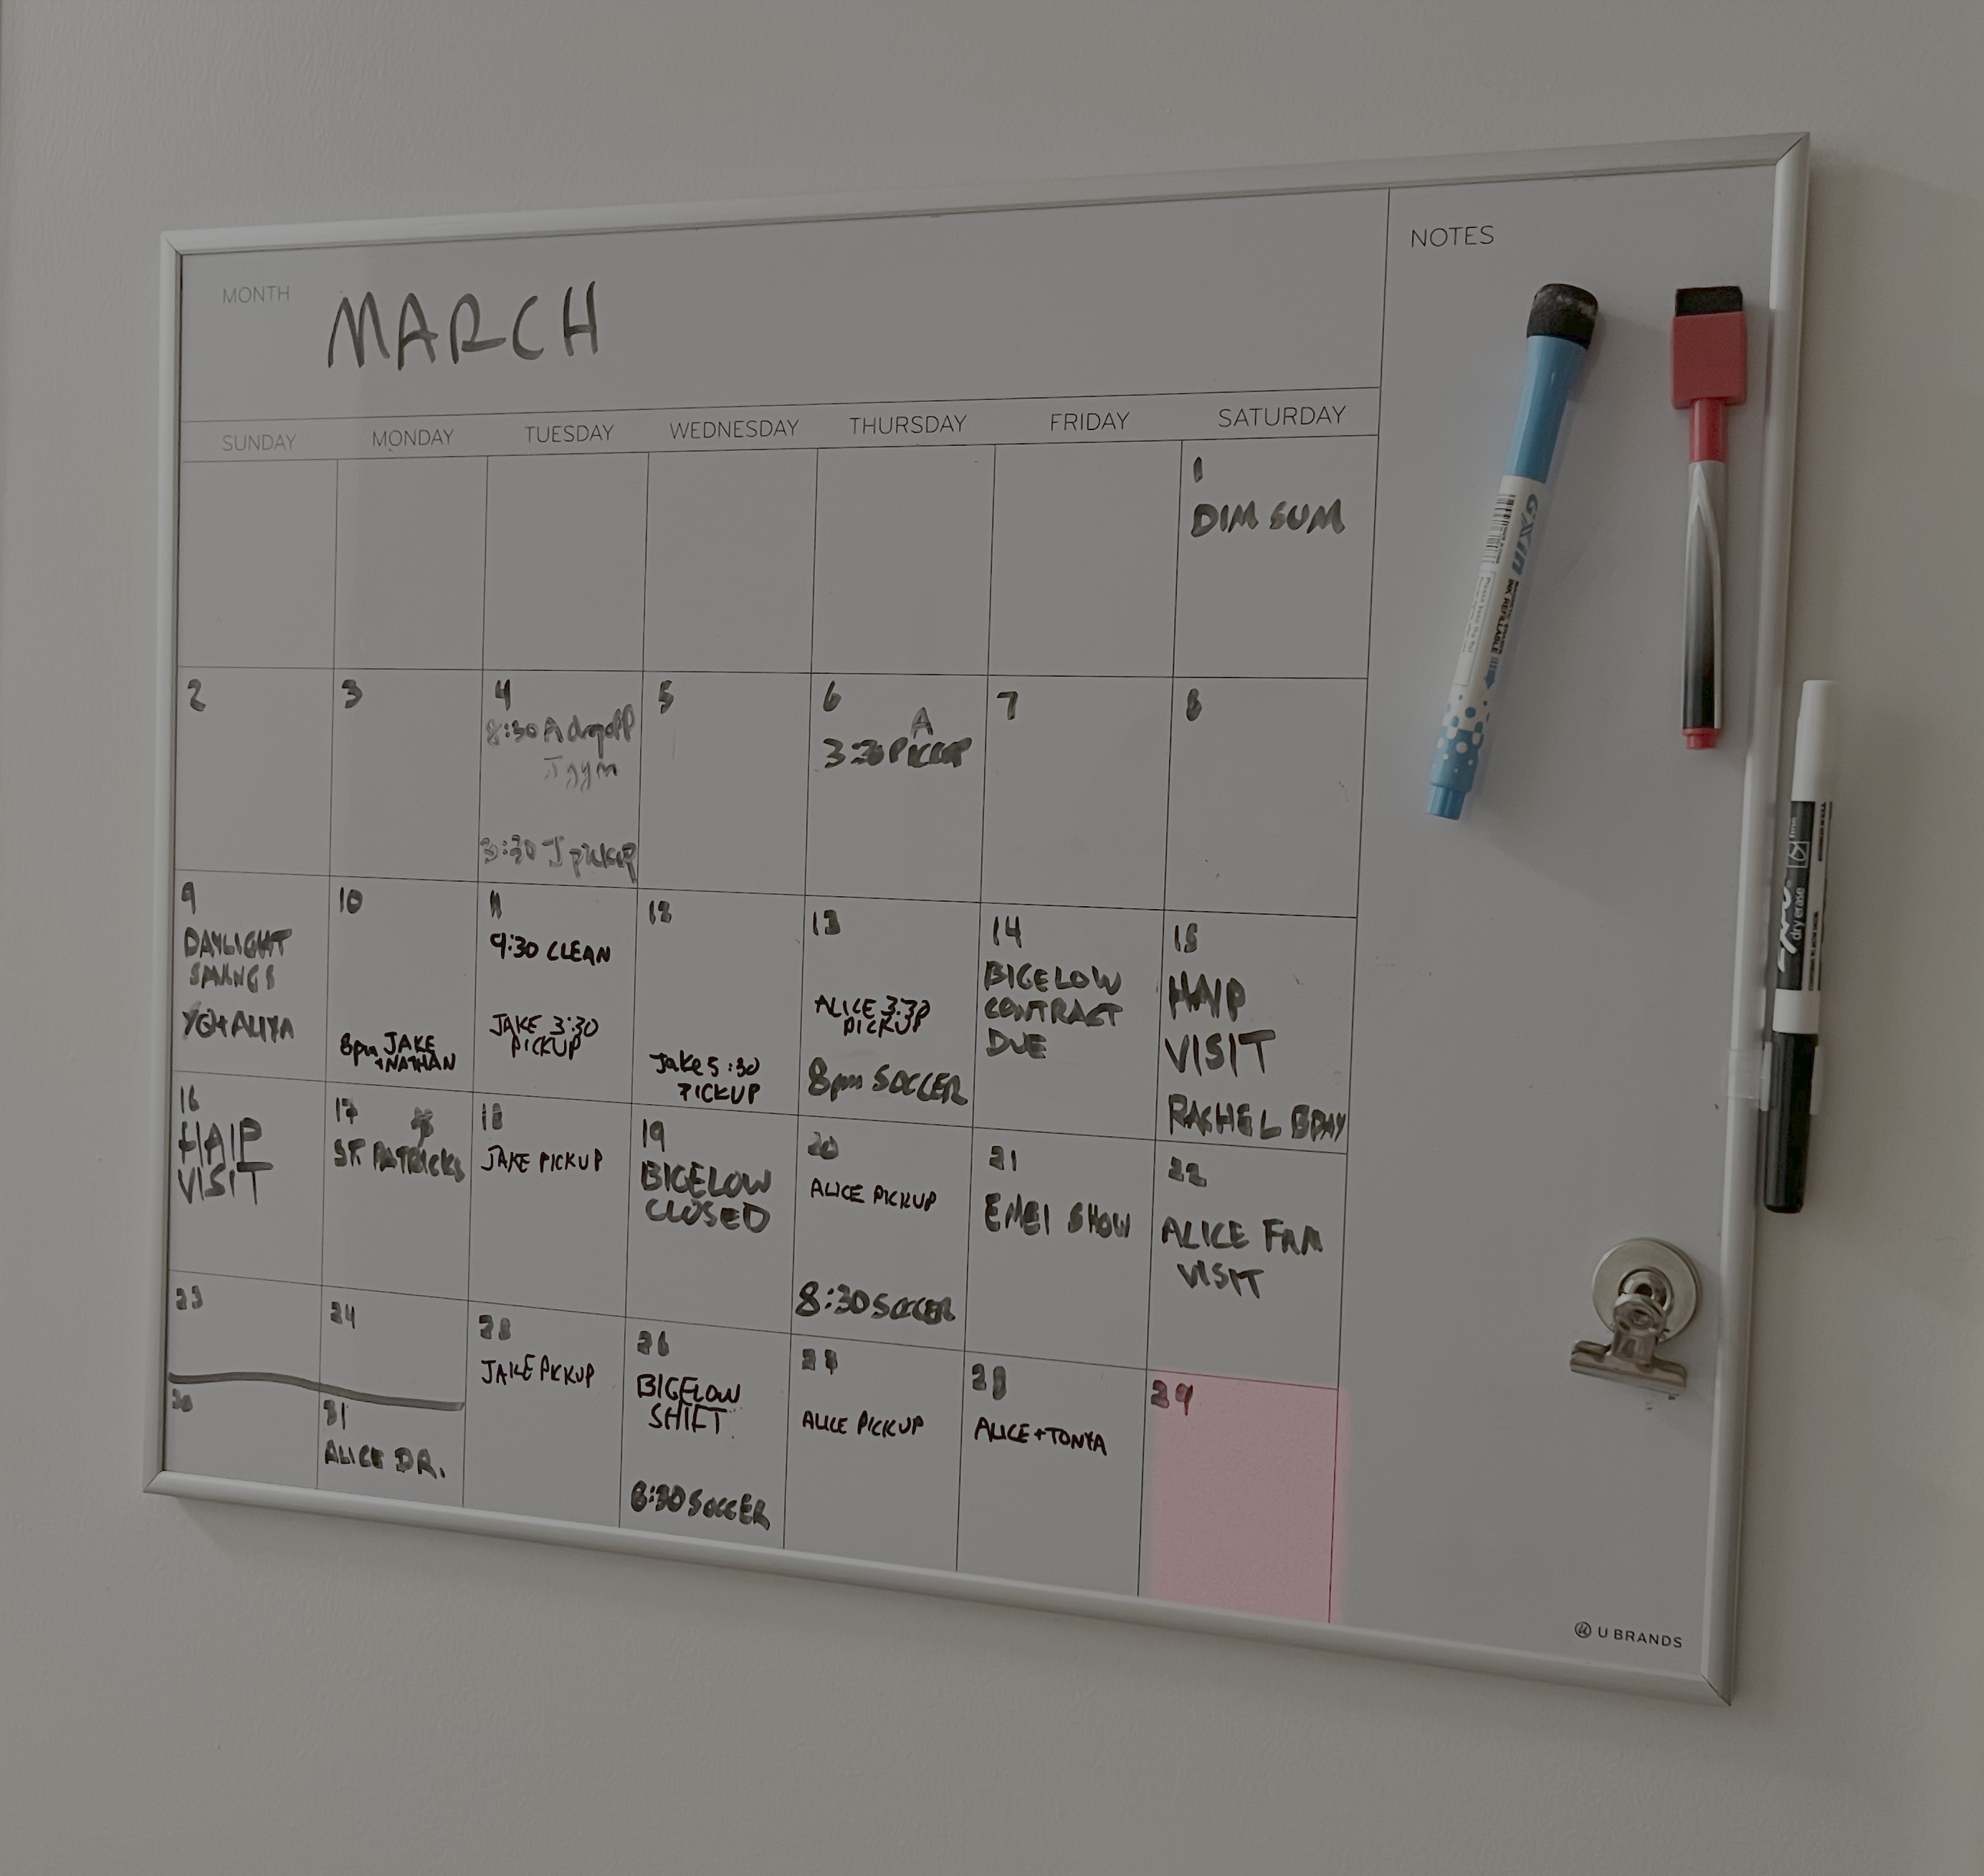 NOTES
MONTH MARCH
SUNDAY MONDAY TUESDAY WEDNESDAY THURSDAY FRIDAY SATURDAY
1
DIM SUM
2
3
4
8:30 A dropoff
J gym
3:30 J pickup
5
6
A
3:30 PICKUP
7
8
9
DAYLIGHT
SAVINGS
ALIYA
10
8pm JAKE
+NATHAN
11
9:30 CLEAN
JAKE 3:30
PICKUP
12
Jake 5:30
PICKUP
13
ALICE 3:30
PICKUP
8pm SOCCER
14
BIGELOW
CONTRACT
DUE
15
HAIP
VISIT
RACHEL BDAY
16
HAIP
VISIT
17
ST. PATRICKS
18
JAKE PICKUP
19
BIGELOW
CLOSED
20
ALICE PICKUP
8:30 SOCCER
21
EMEI SHOW
22
ALICE FAM
VISIT
23
24
25
JAKE PICKUP
26
BIGELOW
SHIFT
8:30 SOCCER
27
ALICE PICKUP
28
ALICE + TONYA
29
30
31
ALICE DR.
U BRANDS
GXIN
dry erase